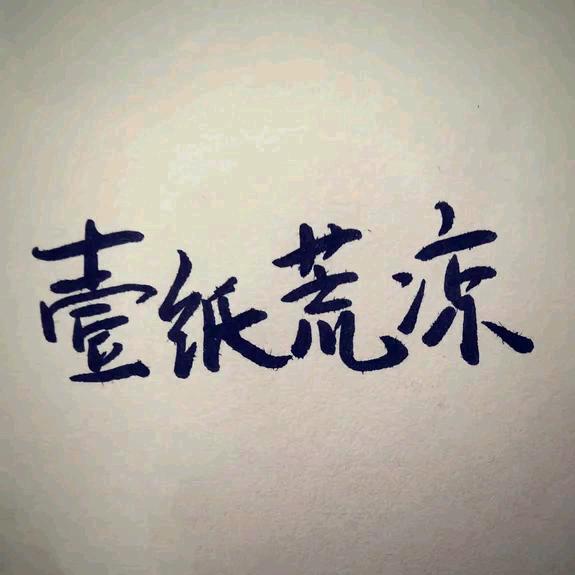 壹纸荒凉